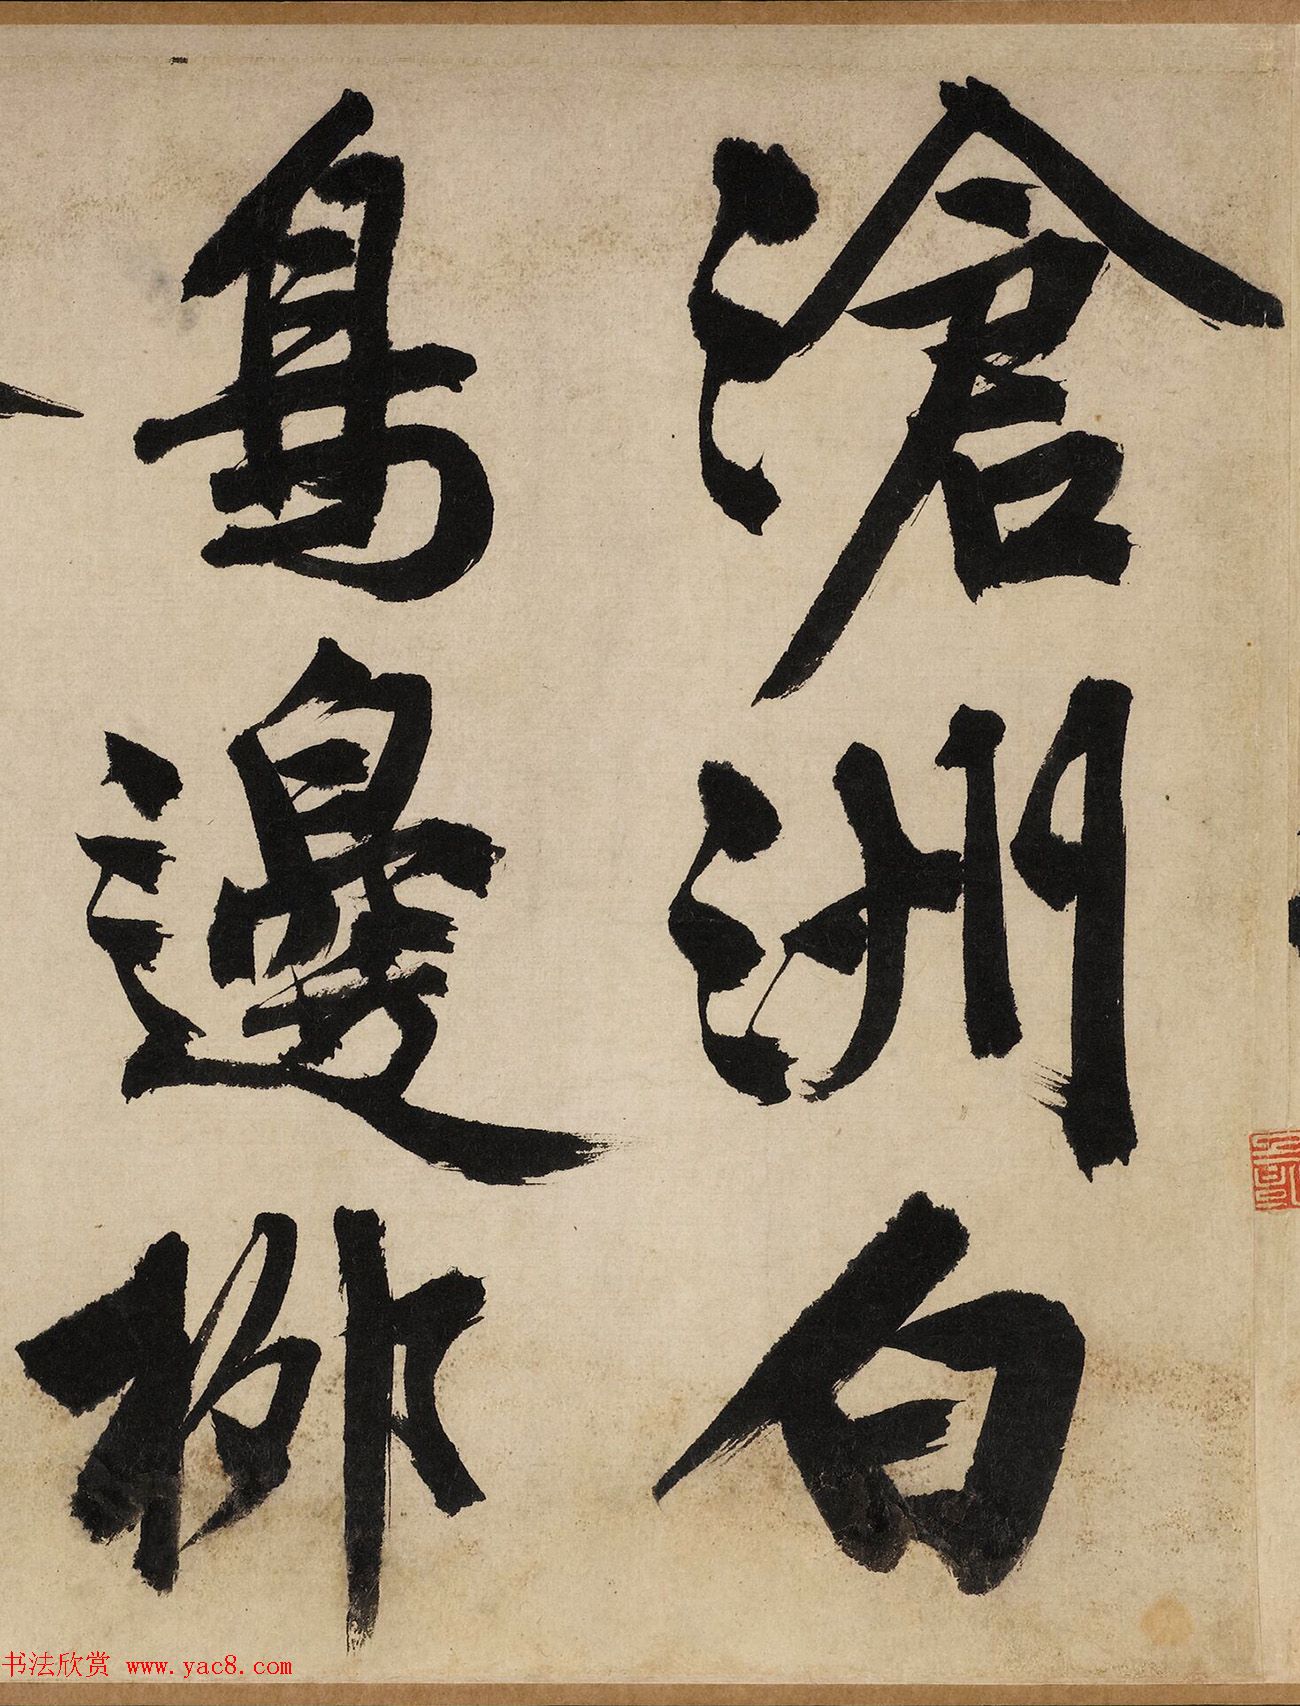 滄洲白
鳥邊柳
书法欣赏 www.yac8.com